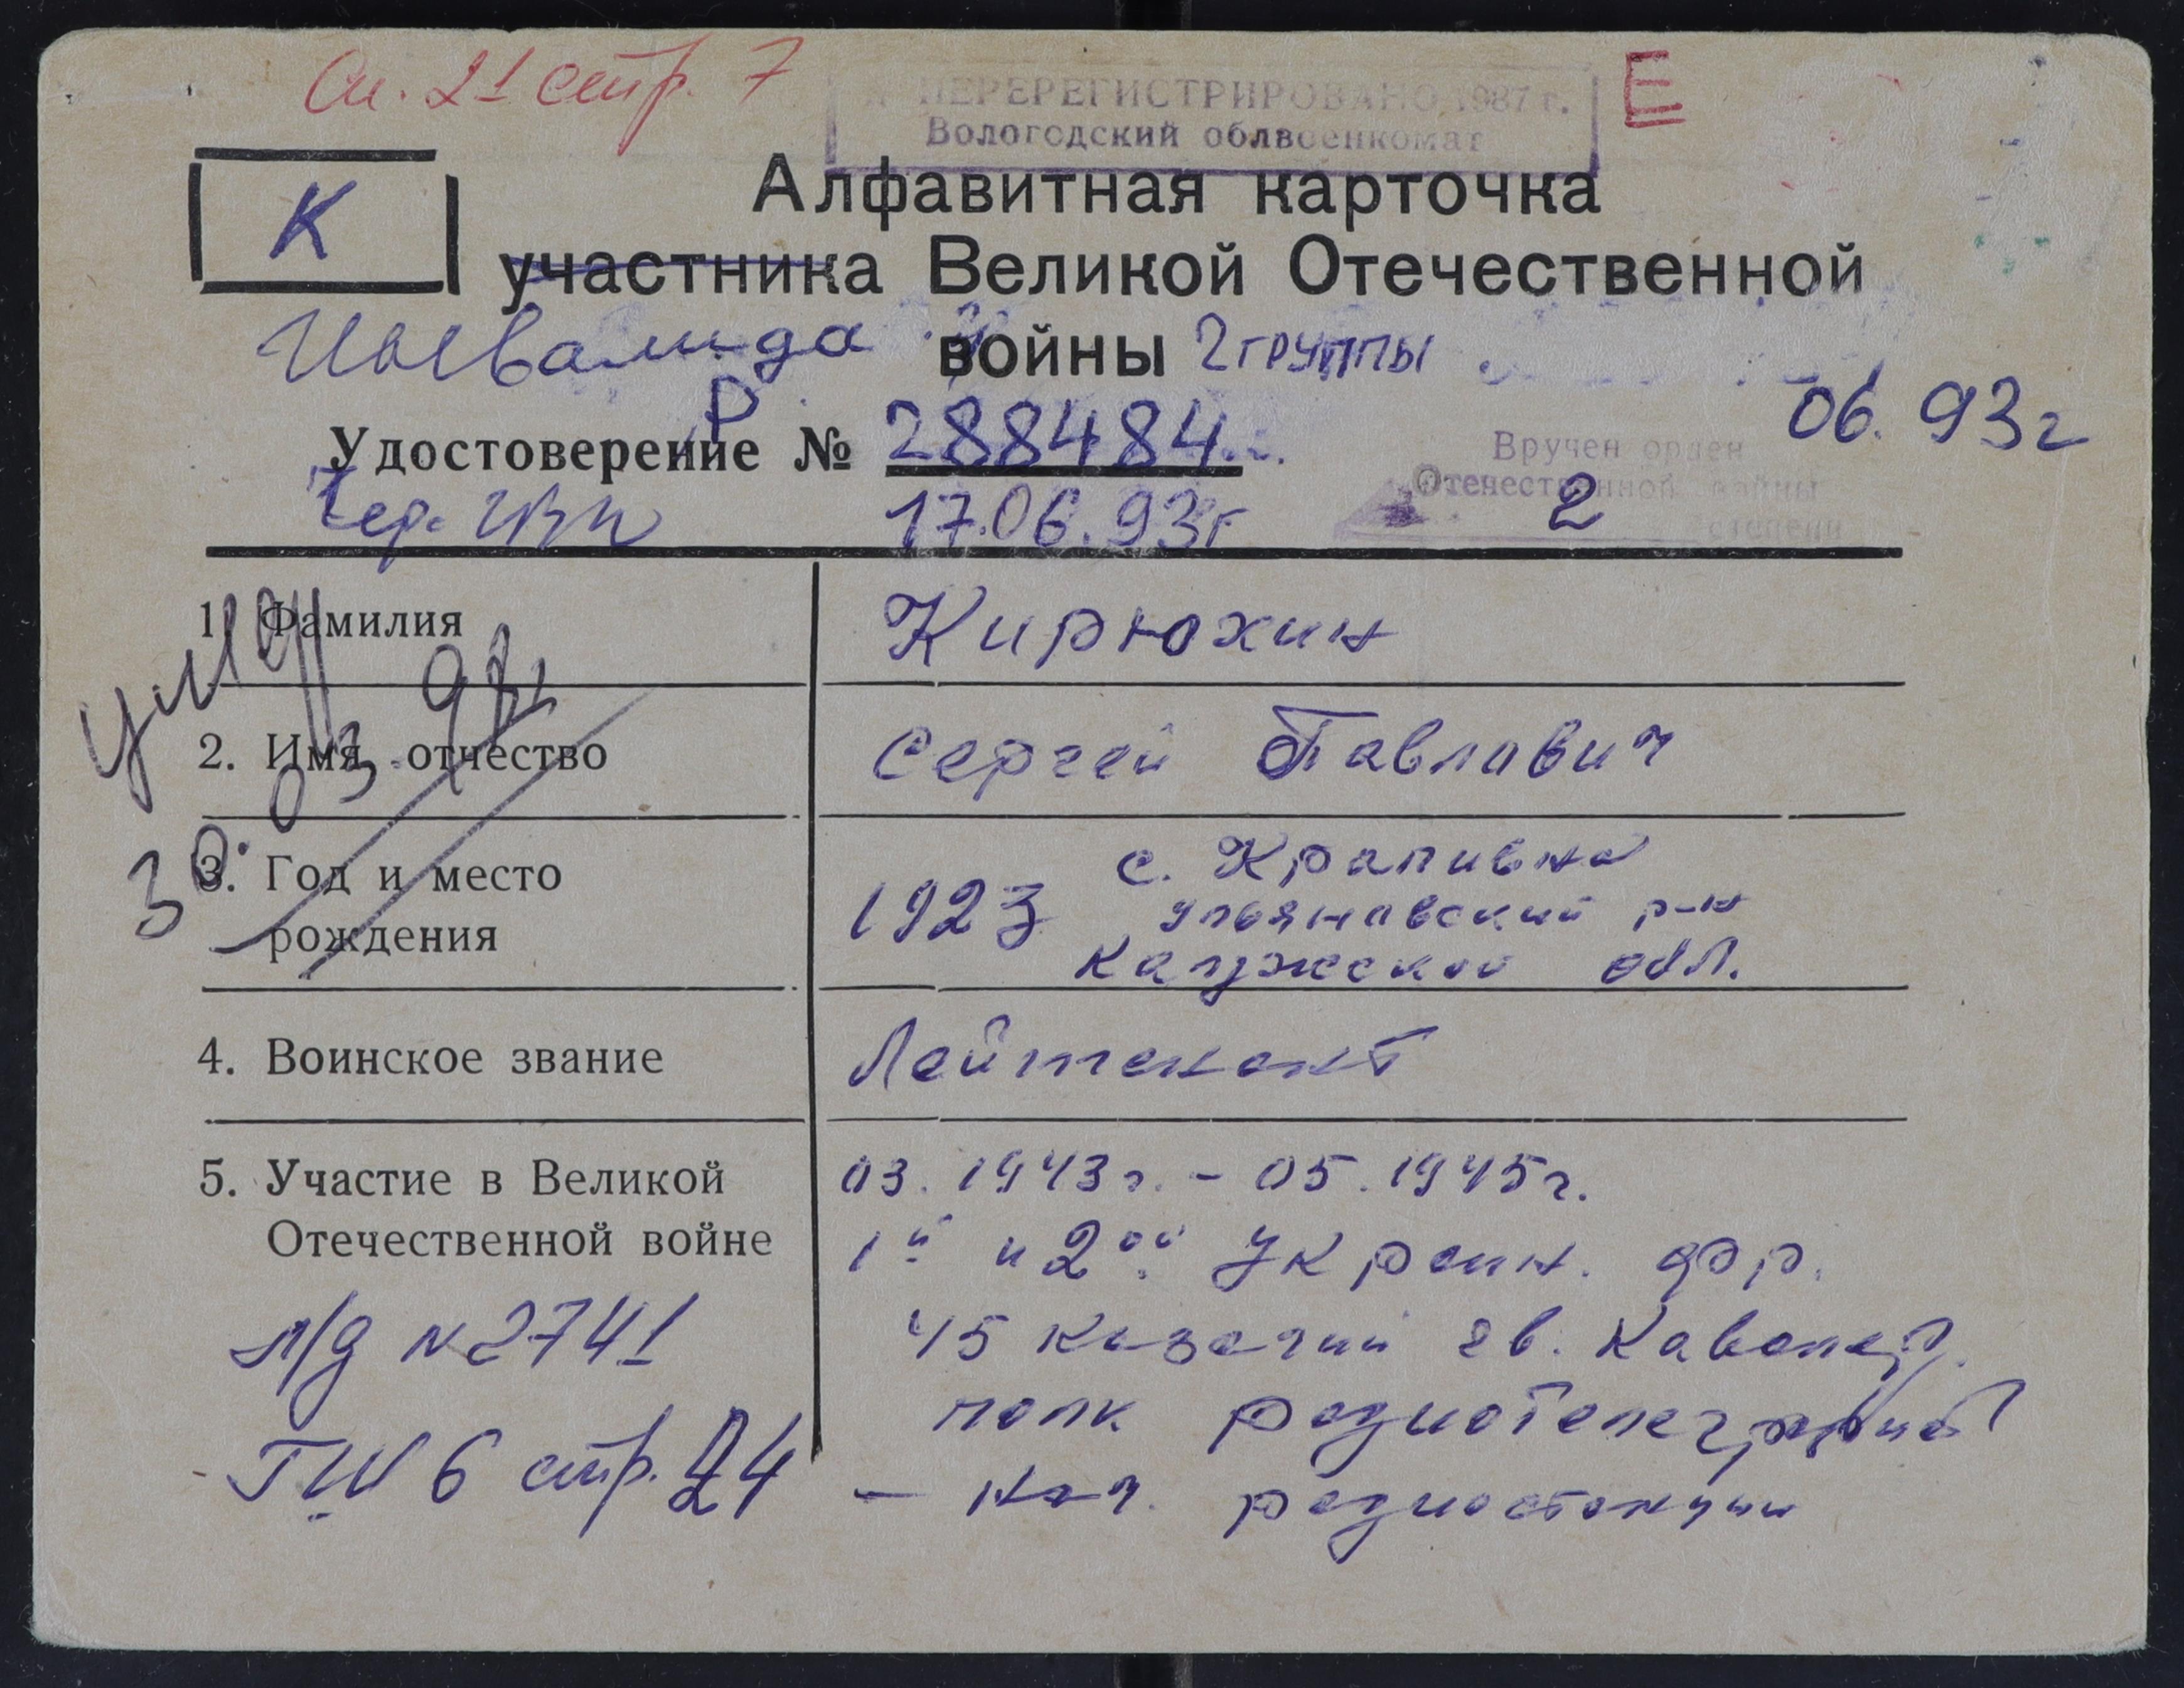 Сп. 21 стр. 7
ПЕРЕРЕГИСТРИРОВАНО 1987 г.
Е
Вологодский облвоенкомат
К
Алфавитная карточка
участника Великой Отечественной
Инвалида войны 2 группы
Р
06.93г
Удостоверение № 288484
Вручен орден
Отечественной войны
2 степени
Чер. ГВК 17.06.93г
1. Фамилия Кирюхин
умер
30.03.98г
2. Имя отчество Сергей Павлович
3. Год и место
рождения
1923 с. Крапивна
Ульяновский р-н
Калужской обл.
4. Воинское звание Лейтенант
5. Участие в Великой
Отечественной войне
03.1943г. - 05.1945г.
1й и 2ой Украин. фр.
45 казачий гв. Кавалер.
полк радиотелеграфист
- Нач. радиостанции
л/д N 2741
ГШ 6 стр. 24